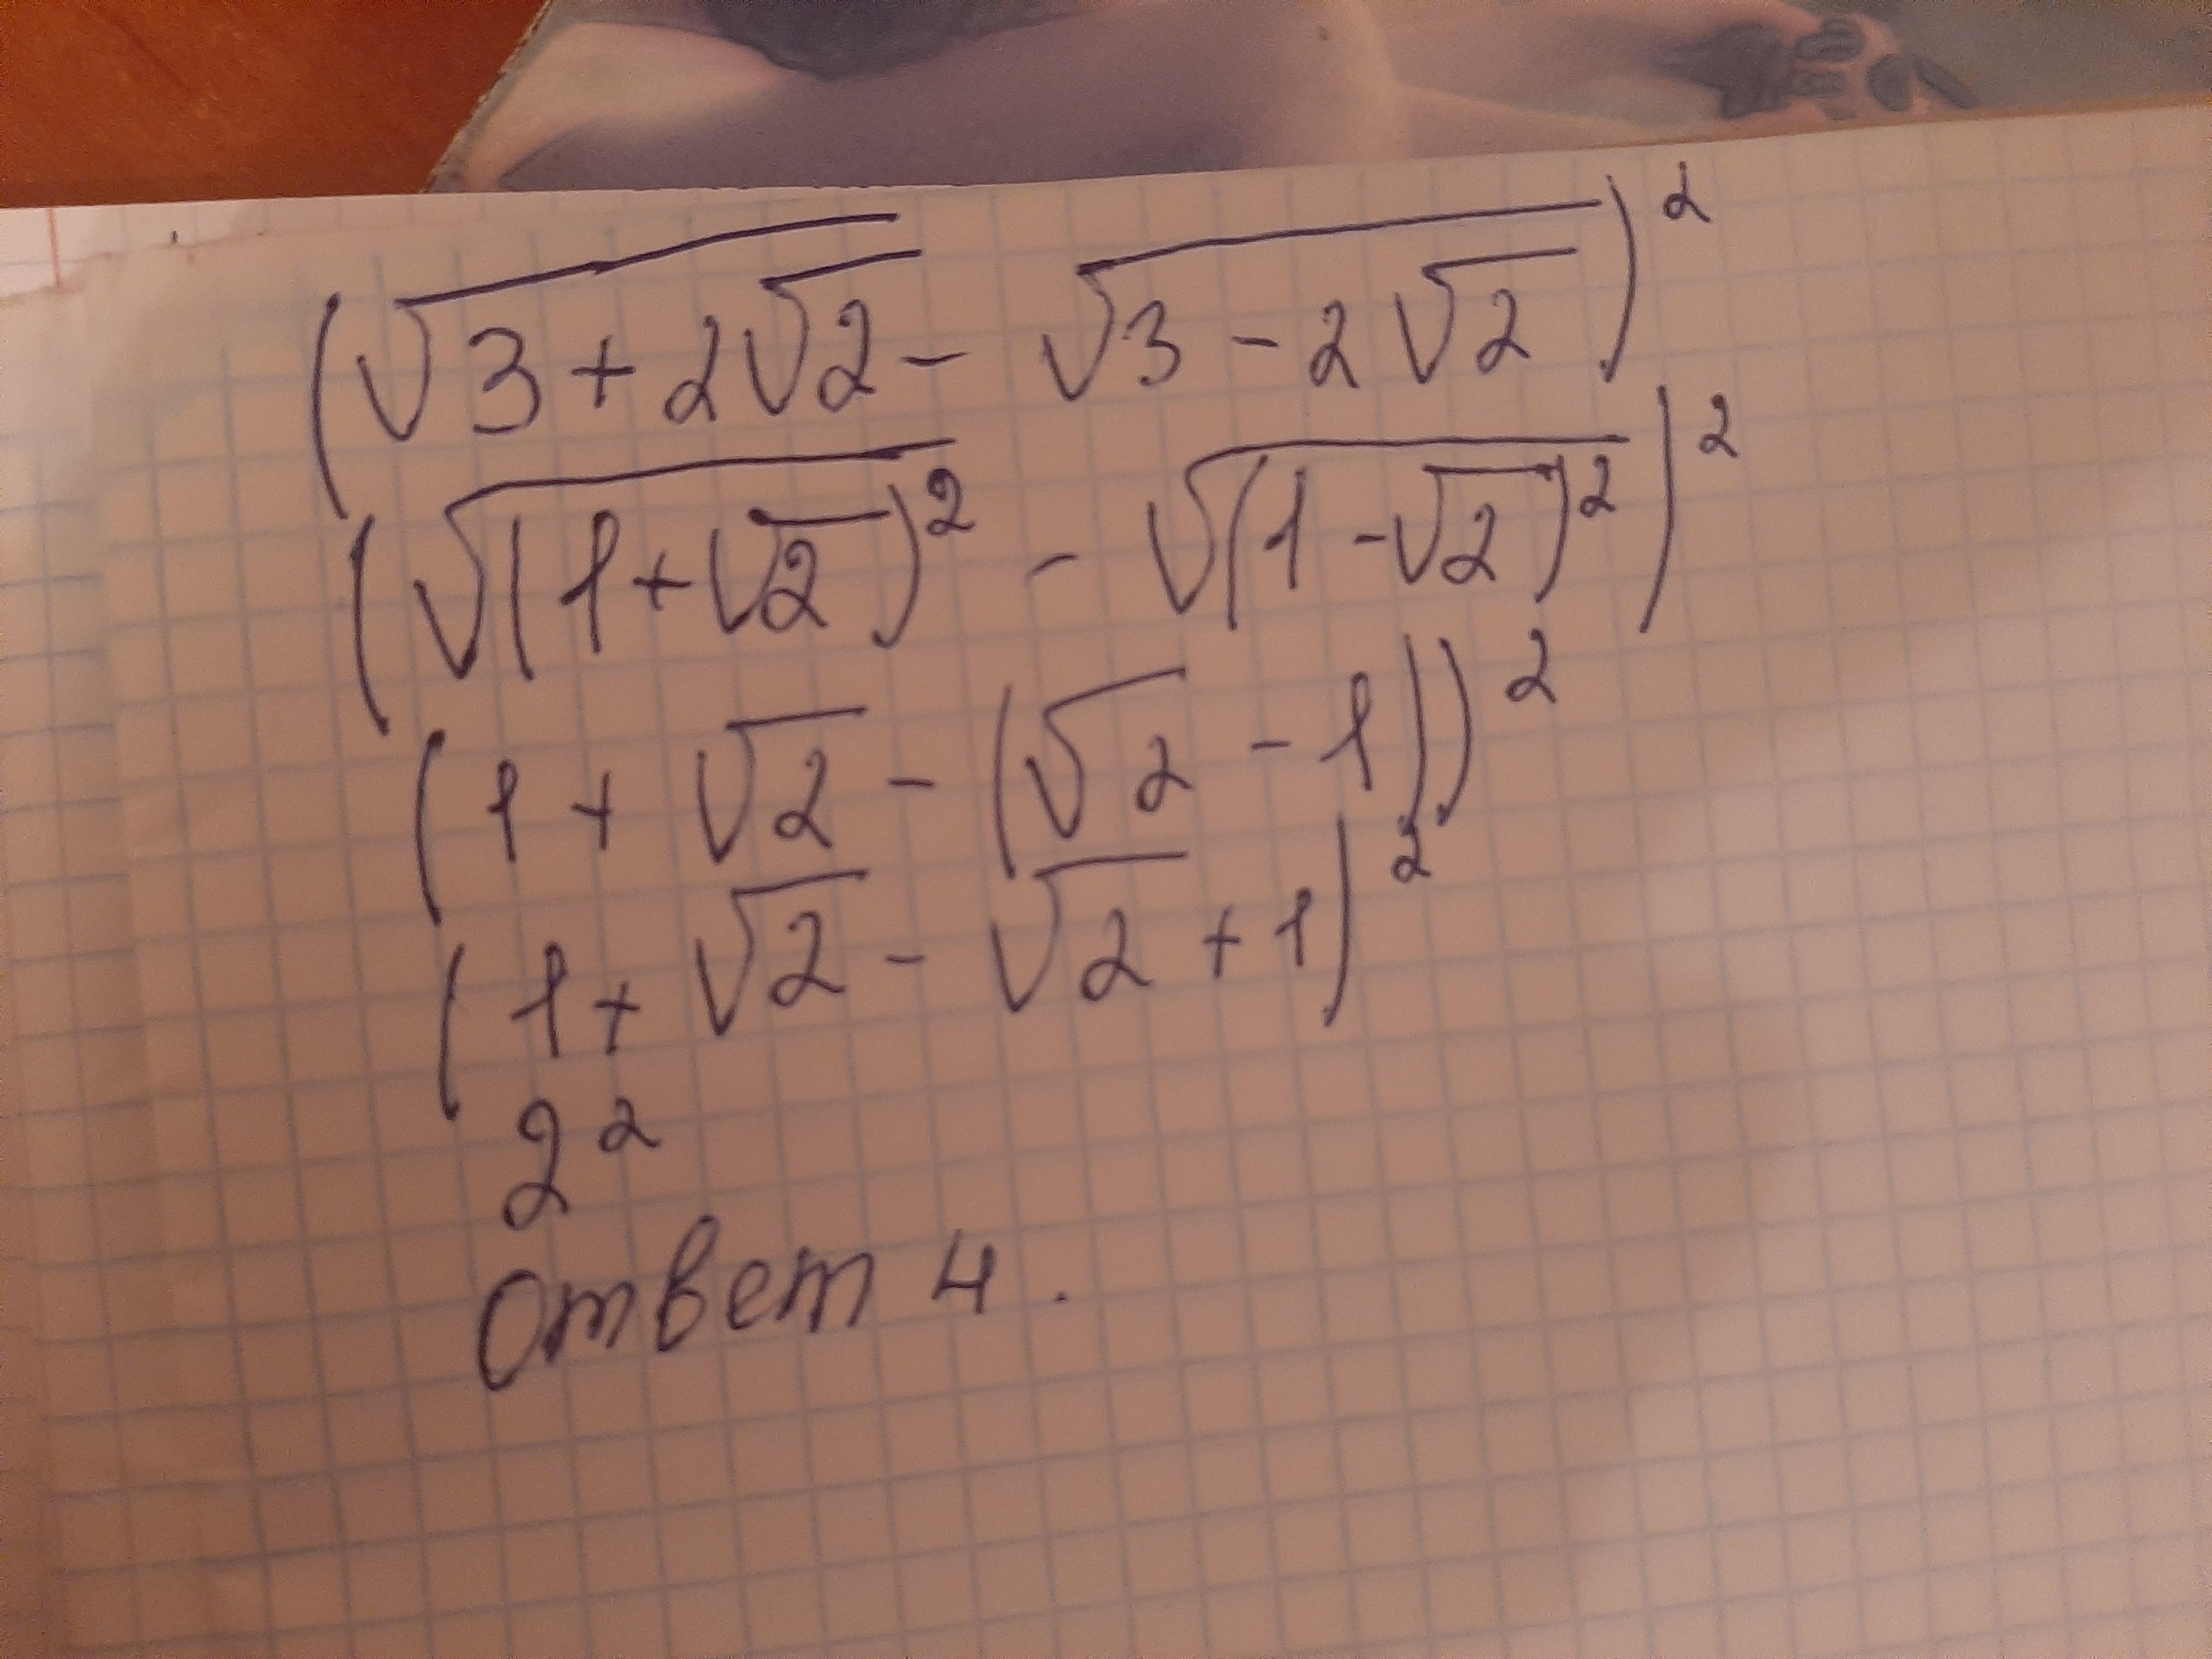 (√(3 + 2√2) - √(3 - 2√2))²
(√((1 + √2)²) - √((1 - √2)²))²
(1 + √2 - (√2 - 1))²
(1 + √2 - √2 + 1)²
2²
Ответ 4.